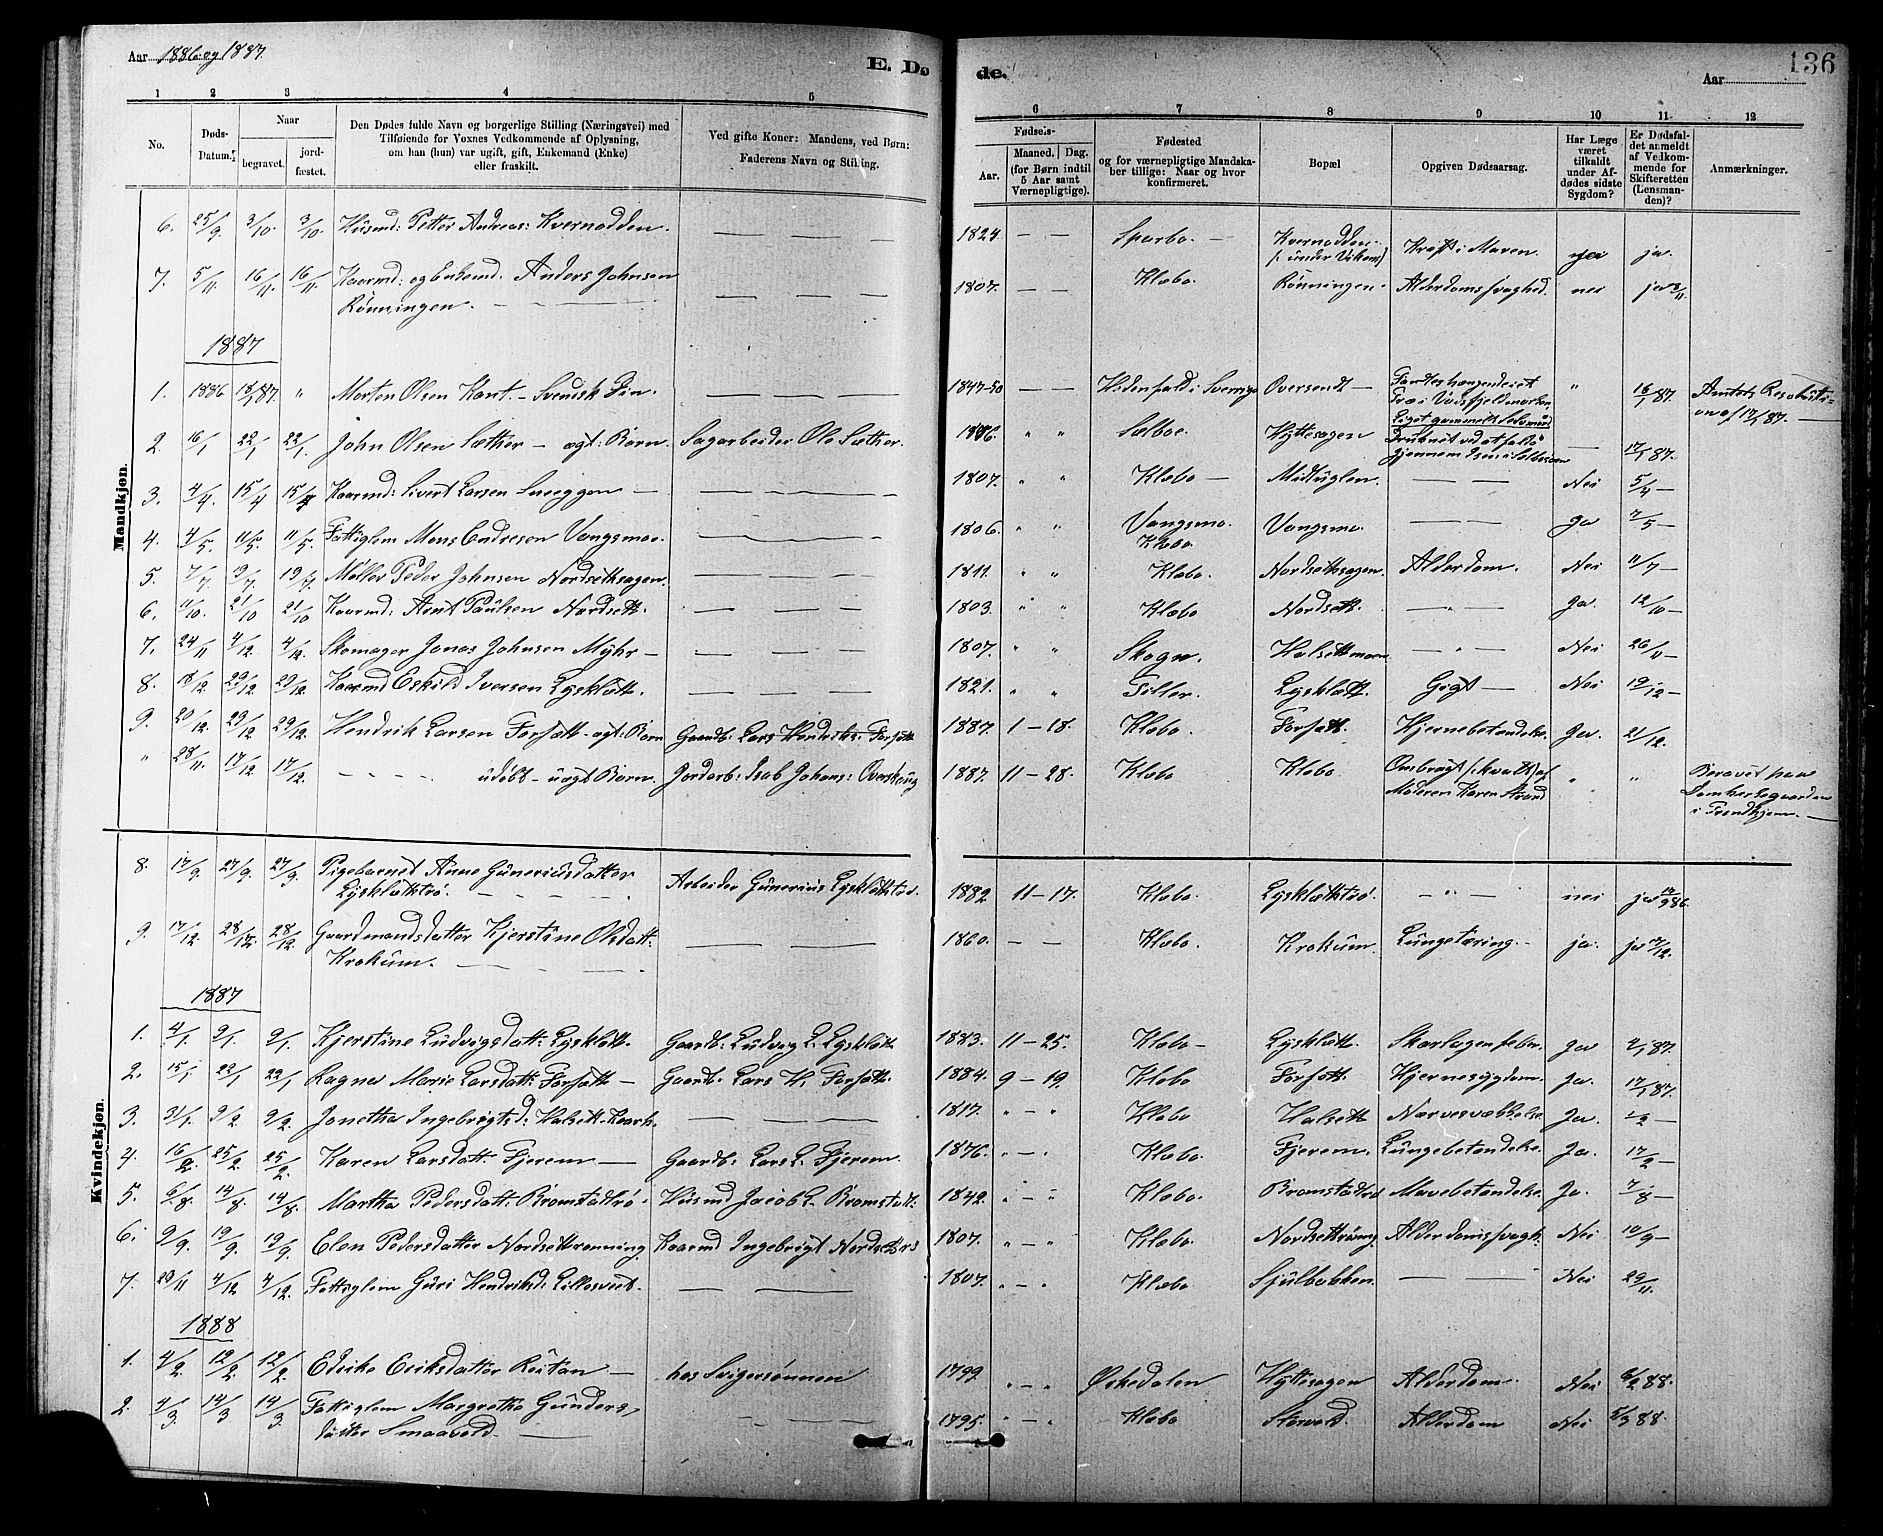 Aar 1886 og 1887.
E. Dø
de.
Aar
136
1 2 3 4 5 6 7 8 9 10 11 12
No.
Døds-Datum.
Naar
begravet.
jord-fæstet.
Den Dødes fulde Navn og borgerlige Stilling (Næringsvei) med
Tilføiende for Voxnes Vedkommende af Oplysning,
om han (hun) var ugift, gift, Enkemand (Enke)
eller fraskilt.
Ved gifte Koner: Mandens, ved Børn:
Faderens Navn og Stilling.
Fødsels-
Aar.
Maaned. Dag.
(for Børn indtil
5 Aar samt
Værnepligtige).
Fødested
og for værnepligtige Mandska-
ber tillige: Naar og hvor
konfirmeret.
Bopæl
Opgiven Dødsaarsag.
Har Læge
været
tilkaldt
under Af-
dødes sidste
Sygdom?
Er Dødsfal-
det anmeldt
af Vedkom-
mende for
Skifteretten
(Lensman-
den)?
Anmærkninger.
Mandkjøn.
6. 25/9 3/10 3/10. Husmd: Petter Andreas: Kvernødden. — — — 1824 — — Sparbo. — Kvernødden (: under Vikem) Kræft i Maven. ja.
7. 5/11 16/11 16/11 Kaarmd: og Enkemd. Anders Johnsen Rønningen. — — — 1807. — — Klæbo. Rønningen. Alderdomssvaghed. nei ja 8/11.
1887
1. 1886 18/1 87. " Morten Olsen Kant. — Svensk Fin. — — — 1847-50 — — i Sverrige Oversendt — Fandtes hængende i et Træ i Vadsfjeldmarken " 16/1 87. Amtets Resolution af 12/1 87. —
2. 16/1 22/1 22/1. John Olsen Sæther — ægt: Barn. Sagarbeider Ole Sæther. 1886. " " Selboe. Hyttesagen Druknet ved at falde gjennem Isen i Selbusøen — 17/1 87.
3. 4/4. 15/4 15/4 Kaarmd: Sivert Larsen Sneeggen — — — 1807. " " Klæbo — Midtuglen. — — Nei 5/4 —
4. 4/5. 11/5. 11/5. Fattiglem Mons Endreson Vangsmoe. — — 1806. " " Vangsmo. Klæbo Vangsmo. — — Ja 7/5 —
5. 7/7. 19/7 19/7. Møller Peder Johnsen Nordsetsagen. — — 1811. " " Klæbo. Nordsetsagen. Alderdom. Nei 11/7 —
6. 11/10. 21/10 21/10 Kaarmd: Arnt Paulsen Nordsett. — — 1803. " " Klæbo Nordsett. — " — Ja. 12/10 —
7. 24/11 4/12. 4/12. Skomager Jonas Johnsen Myhr — — — 1807. " " Skogn. Halsettmoen — " — Nei 26/11 —
8. 18/12. 29/12 29/12. Kaarmd Eskild Iversen Lysklætt. — — 1821. " " Tiller. Lysklætt. Gigt — Nei 19/12 —
9. 20/12. 29/12 29/12. Hendrik Larsen Forsæt — ægt: Barn Gaardb: Lars Hendriks: Forsæt 1887. 1 — 18. Klæbo. Forsætt. Hjernebetændelse. Ja. 21/12.
" 28/11. 17/12 17/12. — — — udøbt — uægt Barn. Jordarb: Isak Johans: Overhaug 1887. 11 — 28. Klæbo Klæbo Ombragt (: kvalt) af Moderen Karen Strand " " Begravet paa Domkirkegaarden i Trondhjem. —
Kvindekjøn.
8. 17/9. 27/9. 27/9. Pigebarnet Anne Guneriusdatter Lysklætstrø. — — Arbeider Gunerius Lysklætstrø. 1882 11 — 17. Klæbo. Lysklætstrø. — " — nei ja 19/9 86.
9. 17/12. 28/12. 28/12 Gaardmandsdatter Kjerstine Olsdatt. Krokum. — — — 1860. — — Klæbo. Krokum. Lungetæring. — ja. ja 17/12.
1887
1. 4/1. 9/1. 9/1. Kjerstine Ludvigsdatt: Lysklætt. Gaardb: Ludvig L. Lysklætt 1883. 11 — 25. Klæbo — Lysklætt. Skarlagenfeber. Ja 7/1 87.
2. 15/1. 22/1 22/1 Ragna Marie Larsdatt: Forsætt — Gaardb: Lars H. Forsætt. 1884. 9 — 19. Klæbo Forsætt. Hjernesygdom. Ja. 17/1 87.
3. 31/1. 9/2 9/2. Jonetha Ingebrigtsd: Halsett Kaark. — — 1817. " — " Klæbo Halsett Nervesvækkelse Ja. 2/2 —
4. 16/2. 25/2. 25/2. Karen Larsdatt: Fjerem — Gaardb: Lars L. Fjerem. 1876. " — " Klæbo. Fjerem. Lungebetændelse. Ja. 17/2 —
5. 6/8. 14/8. 14/8. Martha Pedersdatt: Bromstadtrø. Husmd Jacob L. Bromstadt. 1842. " — " Klæbo. Bromstadtrø Mavebetændelse. Ja. 7/8 —
6. 9/9. 19/9. 19/9. Elen Pedersdatter Nordsetrønning. Kaarmd Ingebrigt Nordsetrs 1807. " — " Klæbo. Nordsetrønng. Alderdomssvagh. Nei 10/9 —
7. 23/11 4/12 4/12. Fattiglem Guri Hendriksd: Lillesvet. — — 1807. " — " Klæbo Sjulbakken. — — Nei 29/11.
1888
1. 4/2. 12/2. 12/2. Edvike Eriksdatter Reitan — hos Svigersønnen 1799. " — " Ørkedalen Hyttesagen Alderdom. Nei 6/2 88.
2. 4/3. 14/3 14/3. Fattiglem Margretha Gunders, datter Smaavold. — — — 1795. " — " Klæbo Storvold. Alderdom Nei 5/3 88.